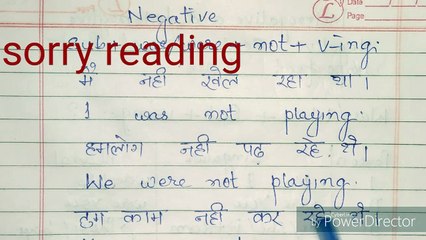 Date
Page
Negative
sorry reading
Sub + was/were + not + V-ing:
में नही खेल रहा था।
I was not playing.
हमलोग नही पढ़ रहे थे।
We were not playing.
तुम काम नही कर रहे थे
PowerDirector